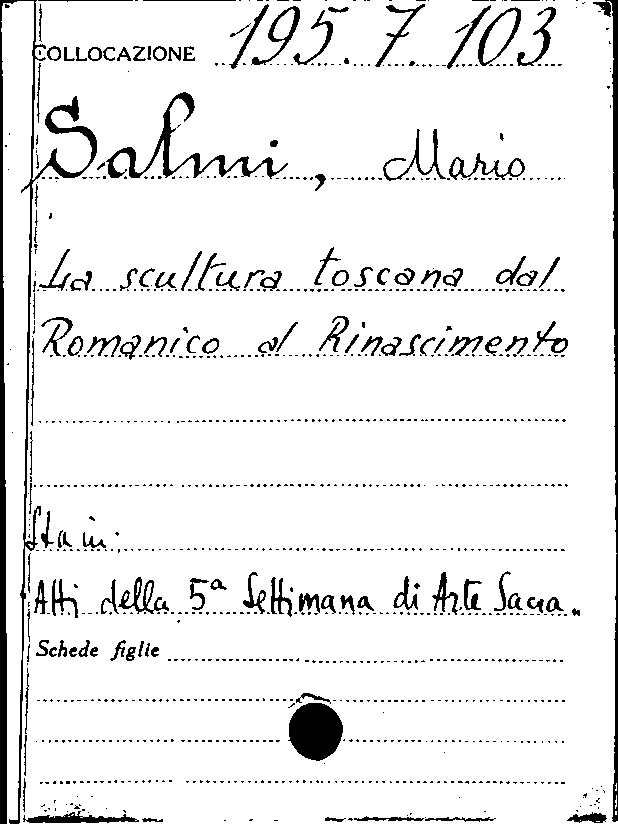 COLLOCAZIONE 195.7.103
Salmi, Mario
La scultura toscana dal
Romanico al Rinascimento
Sta in:
Atti della 5ª Settimana di Arte Sacra.
Schede figlie